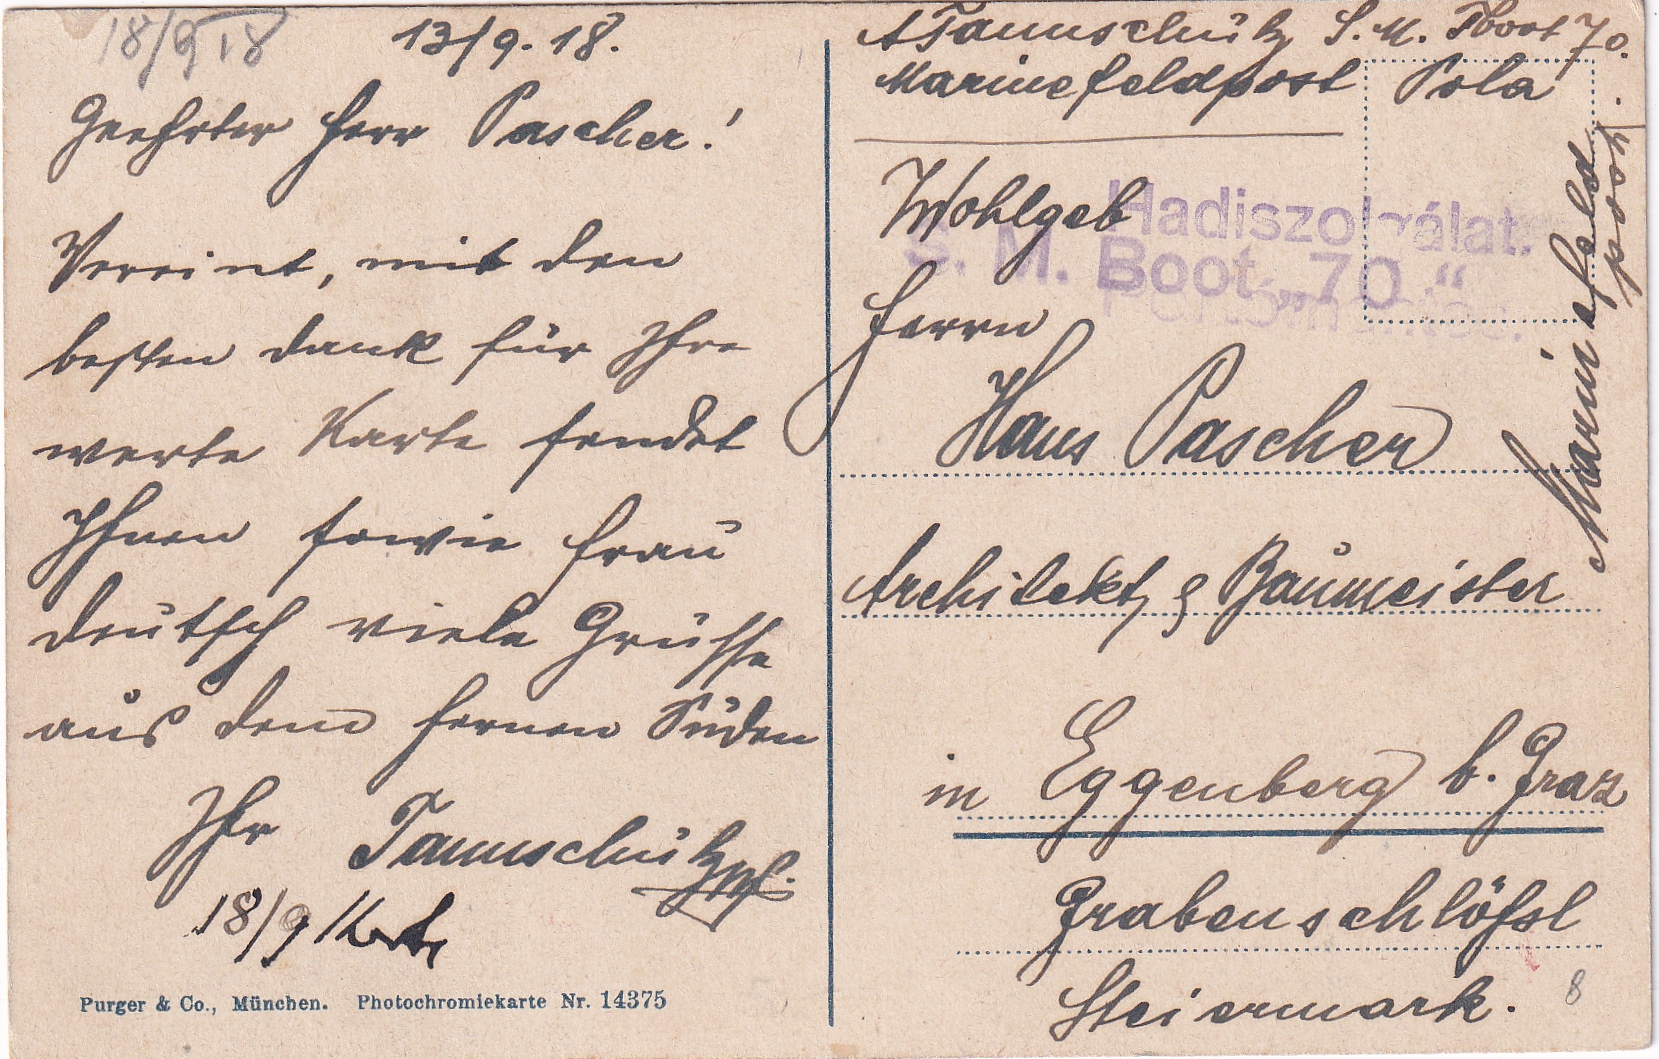 18/9 18
13/9. 18.
Geehrter Herr Pascher!
Vereint, mit den
besten Dank für Ihre
werte Karte sendet
Ihnen sowie Frau
Deutsch viele Grüsse
aus dem fernen Süden
Ihr Tannschütz
18/9 Karte
Purger & Co., München. Photochromiekarte Nr. 14375
A Tannschütz S. M. Tboot 70.
Marinefeldpost Pola
Marinefeld
post.
Hadiszolgálat.
S. M. Boot „70“
Portómentes.
Wohlgeb
Herrn
Hans Pascher
Architekt & Baumeister
in Eggenberg b. Graz
Grabenschlößl
Steiermark.
8